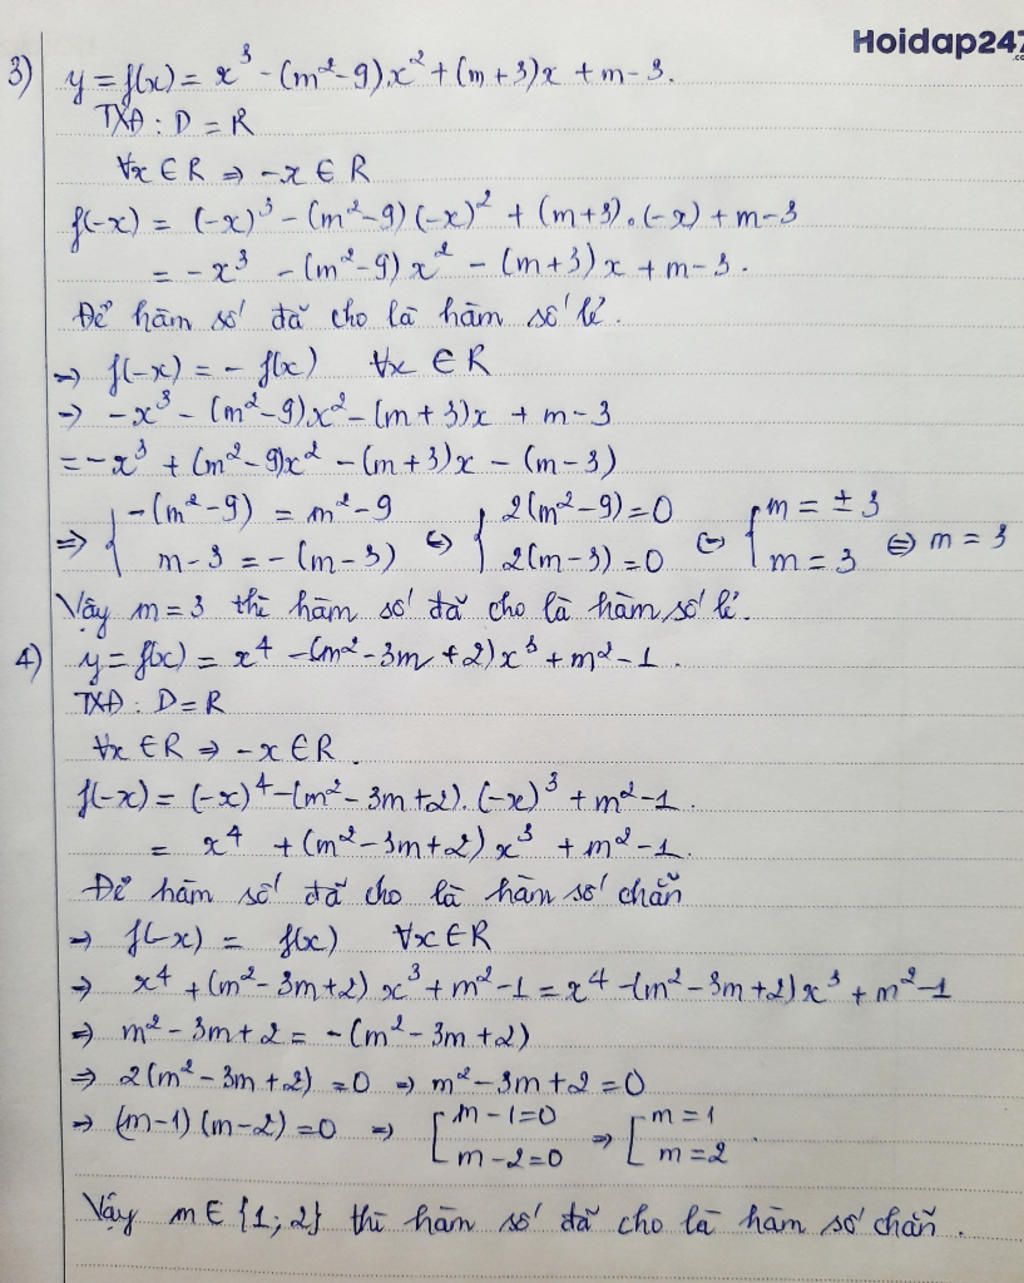 Hoidap247
.co
3) y = f(x) = x³ - (m² - 9)x² + (m + 3)x + m - 3.
TXĐ : D = R
∀x ∈ R ⇒ -x ∈ R
f(-x) = (-x)³ - (m² - 9)(-x)² + (m+3).(-x) + m - 3
= -x³ - (m² - 9)x² - (m+3)x + m - 3.
Để hàm số đã cho là hàm số lẻ.
⇒ f(-x) = - f(x) ∀x ∈ R
⇒ -x³ - (m² - 9)x² - (m + 3)x + m - 3
= -x³ + (m² - 9)x² - (m + 3)x - (m - 3)
⇒ { -(m² - 9) = m² - 9 ⇔ { 2(m² - 9) = 0 ⇔ { m = ± 3
m - 3 = -(m - 3) 2(m - 3) = 0 m = 3 ⇔ m = 3
Vậy m = 3 thì hàm số đã cho là hàm số lẻ.
4) y = f(x) = x⁴ - (m² - 3m + 2)x³ + m² - 1.
TXĐ : D = R
∀x ∈ R ⇒ -x ∈ R.
f(-x) = (-x)⁴ - (m² - 3m + 2).(-x)³ + m² - 1.
= x⁴ + (m² - 3m + 2)x³ + m² - 1.
Để hàm số đã cho là hàm số chẵn
⇒ f(-x) = f(x) ∀x ∈ R
⇒ x⁴ + (m² - 3m + 2)x³ + m² - 1 = x⁴ - (m² - 3m + 2)x³ + m² - 1
⇒ m² - 3m + 2 = -(m² - 3m + 2)
⇒ 2(m² - 3m + 2) = 0 ⇒ m² - 3m + 2 = 0
⇒ (m - 1)(m - 2) = 0 ⇒ [ m - 1 = 0 ⇒ [ m = 1
m - 2 = 0 m = 2.
Vậy m ∈ {1; 2} thì hàm số đã cho là hàm số chẵn.